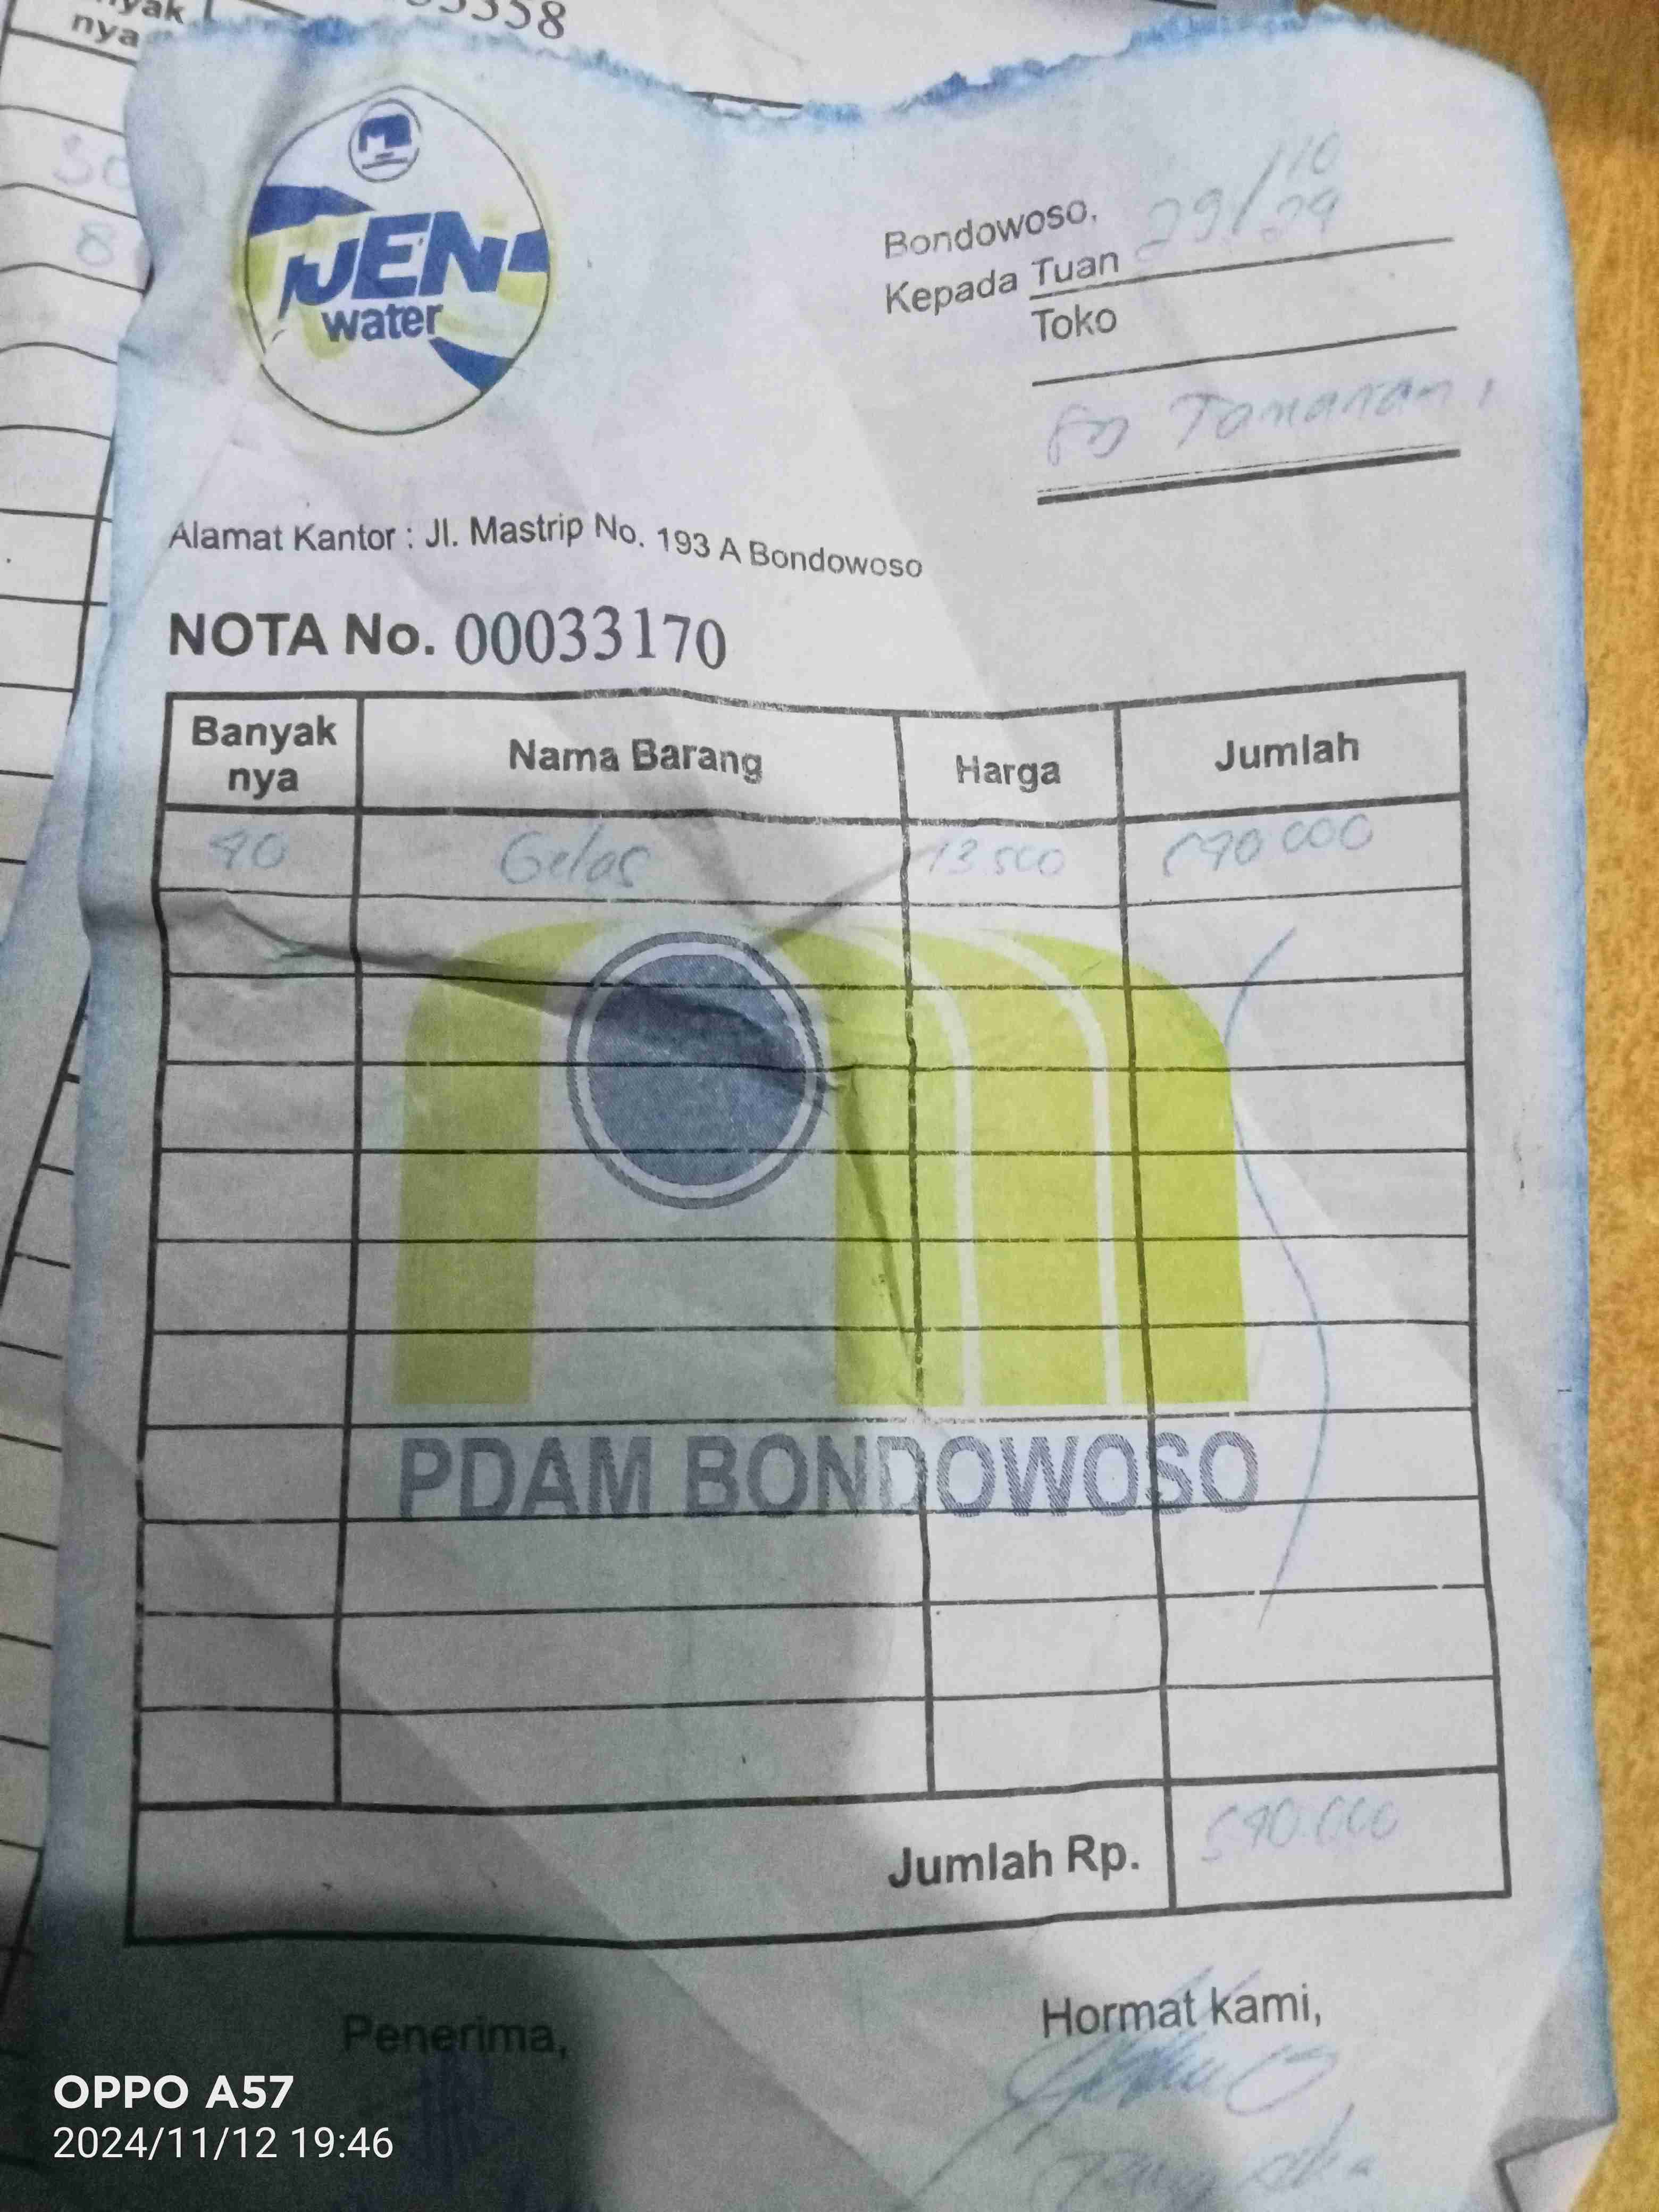 nyak
nya
8
IJEN
water
Bondowoso, 29/10 24
Kepada Tuan
Toko
Tamanan
Alamat Kantor : Jl. Mastrip No. 193 A Bondowoso
NOTA No. 00033170
Banyak nya Nama Barang Harga Jumlah
40 Gelas 13 500 540 000
PDAM BONDOWOSO
Jumlah Rp. 540.000
Penerima, Hormat kami,
OPPO A57
2024/11/12 19:46